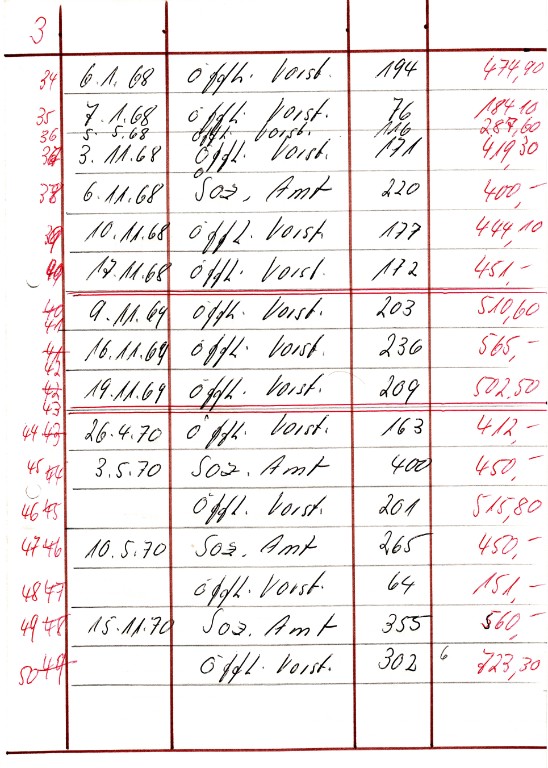 3
34 6.1.68 Öffl. Vorst. 194 474,90
35 7.1.68 Öffl. Vorst. 76 184,10
36 5.5.68 Öffl. Vorst. 116 287,60
37 3.11.68 Öffl. Vorst. 171 419,30
38 6.11.68 Soz. Amt 220 400,-
39 10.11.68 Öffl. Vorst. 177 444,10
40 17.11.68 Öffl. Vorst. 172 451,-
40 41 9.11.69 Öffl. Vorst. 203 510,60
41 42 16.11.69 Öffl. Vorst. 236 565,-
42 43 19.11.69 Öffl. Vorst. 209 502,50
44 43 26.4.70 Öffl. Vorst. 163 412,-
45 44 3.5.70 Soz. Amt 400 450,-
46 45 Öffl. Vorst. 201 515,80
47 46 10.5.70 Soz. Amt 265 450,-
48 47 Öffl. Vorst. 64 151,-
49 48 15.11.70 Soz. Amt 355 560,-
50 49 Öffl. Vorst. 302 6 723,30